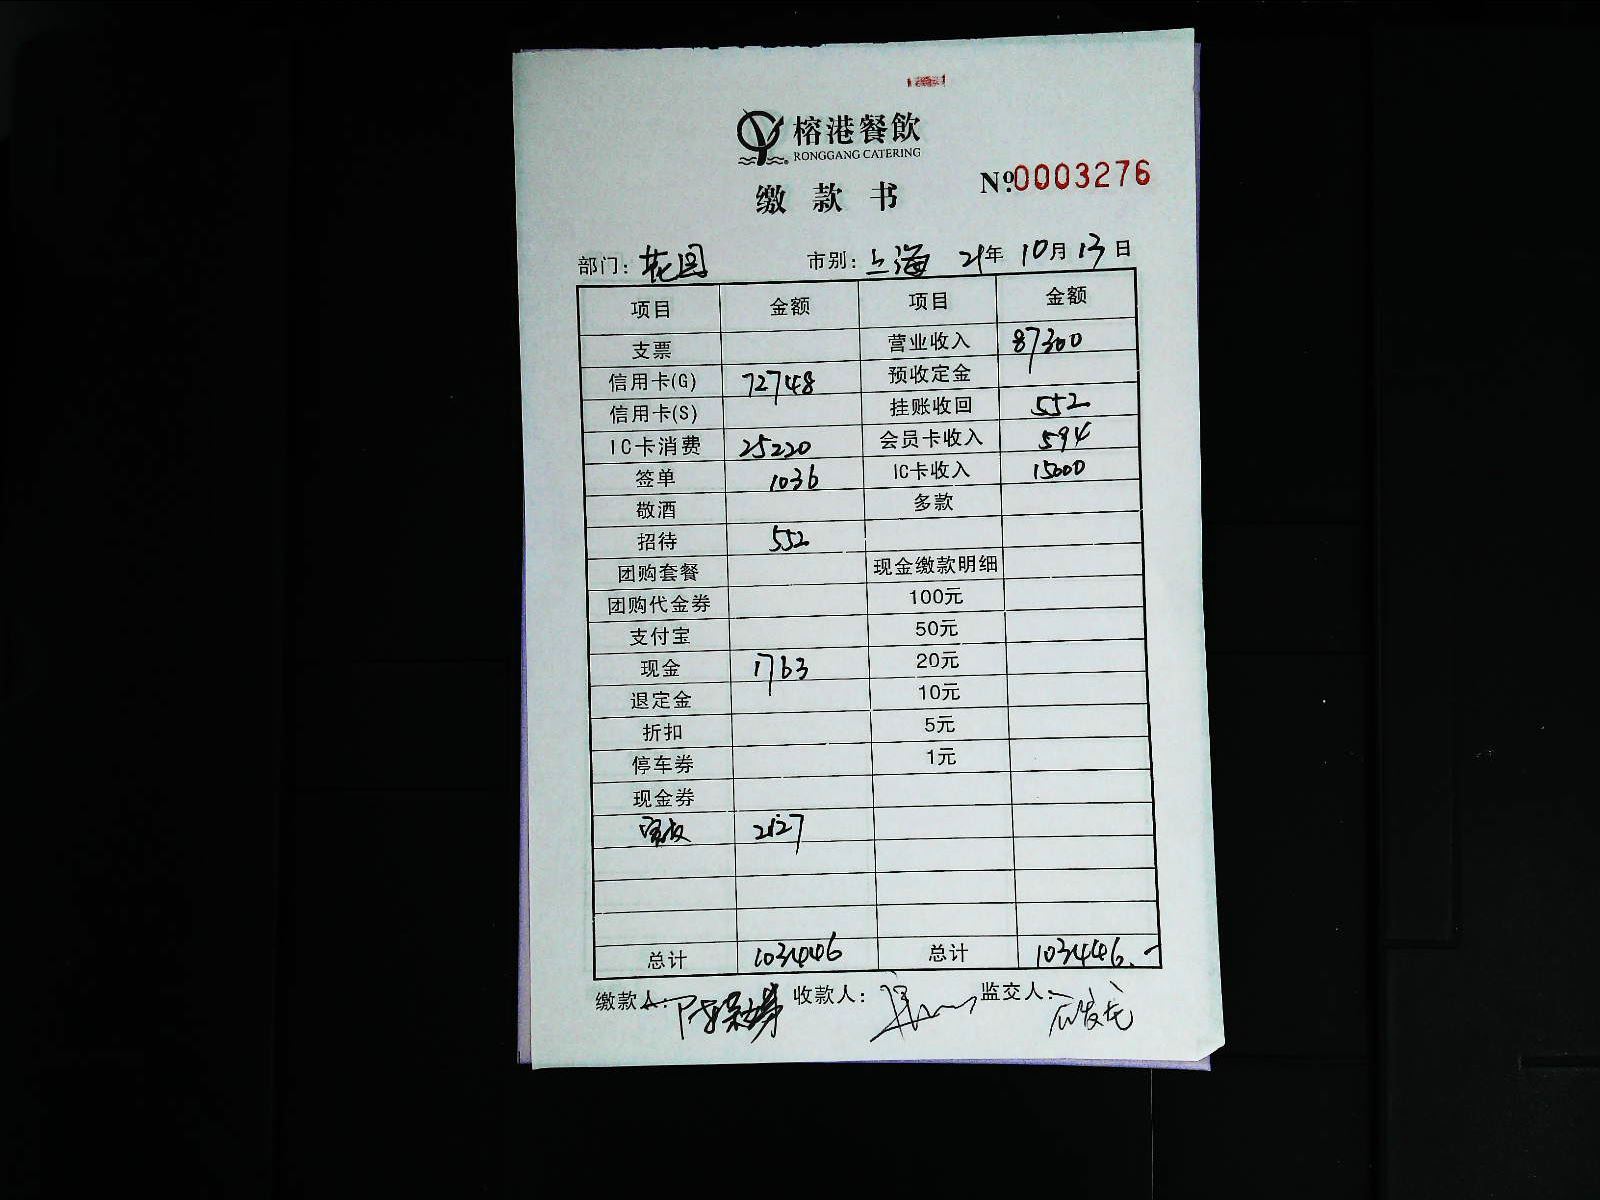 榕港餐飲
RONGGANG CATERING
缴款书 №0003276
部门：花园 市别：上海 21年10月13日
项目 金额 项目 金额
支票 营业收入 87300
信用卡(G) 72748 预收定金
信用卡(S) 挂账收回 552
IC卡消费 25220 会员卡收入 594
签单 1036 IC卡收入 15000
敬酒 多款
招待 552
团购套餐 现金缴款明细
团购代金券 100元
支付宝 50元
现金 1763 20元
退定金 10元
折扣 5元
停车券 1元
现金券
2127
总计 103446 总计 103446.-
缴款人： 收款人： 监交人：